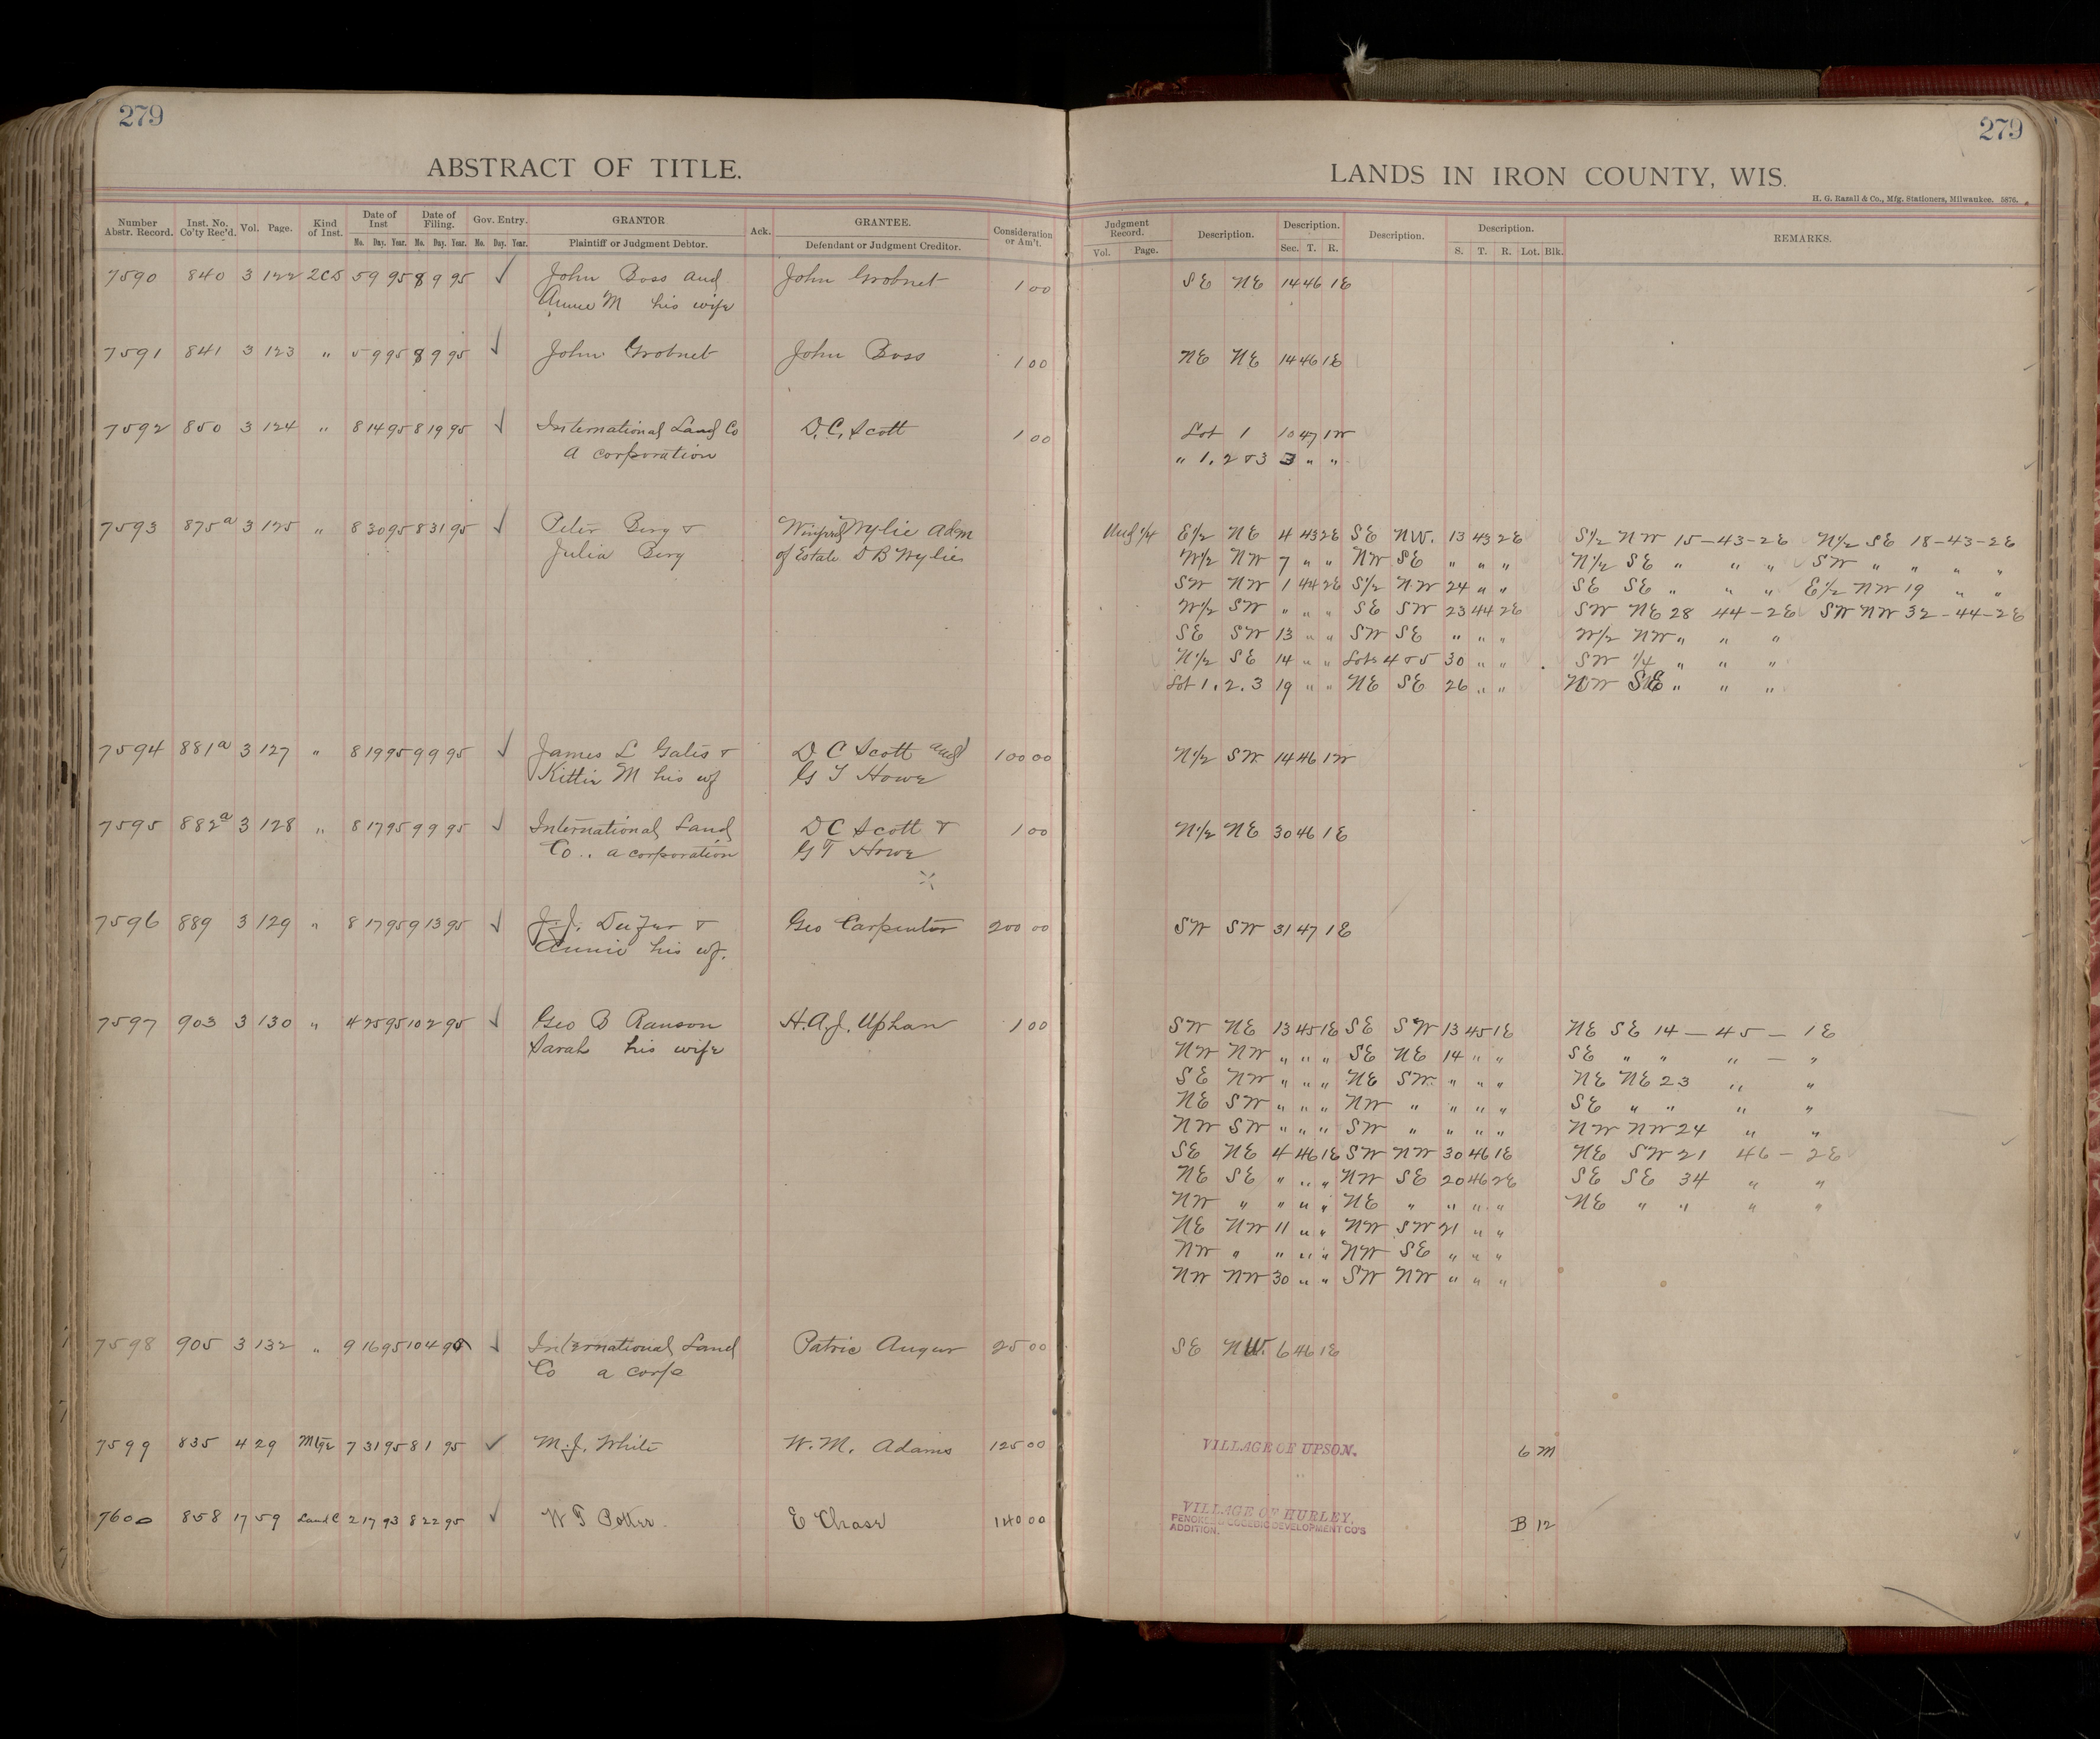 279
279
ABSTRACT OF TITLE.
LANDS IN IRON COUNTY, WIS.
H. G. Razall & Co., Mfg. Stationers, Milwaukee. 5876.
Number Abstr. Record. Inst. No. Co'ty Rec'd. Vol. Page. Kind of Inst. Date of Inst Mo. Day. Year. Date of Filing. Mo. Day. Year. Gov. Entry. Mo. Day. Year. GRANTOR Plaintiff or Judgment Debtor. Ack. GRANTEE. Defendant or Judgment Creditor. Consideration or Am't.
Judgment Record. Vol. Page. Description. Description. Sec. T. R. Description. Description. S. T. R. Lot. Blk. REMARKS.
7590 840 3 122 2CD 5 9 95 8 9 95 ✓ John Boss and John Grobnet 1 00 SE NE 14 46 1E
Annie M his wife
7591 841 3 123 " 5 9 95 8 9 95 ✓ John Grobnet John Boss 1 00 NE NE 14 46 1E
7592 850 3 124 " 8 14 95 8 19 95 ✓ International Land Co D.C. Scott 1 00 Lot 1 10 47 1W
a corporation " 1, 2 & 3 3 " "
7593 875a 3 125 " 8 30 95 8 31 95 ✓ Peter Berg & Wylie Adm Und 1/4 E1/2 NE 4 43 2E SE NW. 13 43 2E S1/2 NW 15-43-2E N1/2 SE 18-43-2E
Julia Berg of Estate D B Wylie W1/2 NW 7 " " NW SE " " " N1/2 SE " " " SW " " " "
SW NW 1 44 2E S1/2 NW 24 " " SE SE " " " E1/2 NW 19 " "
W1/2 SW " " " SE SW 23 44 2E SW NE 28 44-2E SW NW 32-44-2E
SE SW 13 " " SW SE " " " W1/2 NW " " "
N1/2 SE 14 " " Lots 4 & 5 30 " " SW 1/4 " " "
Lot 1. 2. 3 19 " " NE SE 26 " " NW SE " " "
7594 881a 3 127 " 8 19 95 9 9 95 ✓ James L Gates & D C Scott and 100 00 N1/2 SW 14 46 1W
Kittie M his wf G T Howe
7595 882a 3 128 " 8 17 95 9 9 95 ✓ International Land D C Scott & 1 00 N1/2 NE 30 46 1E
Co.. a corporation G T Howe
7596 889 3 129 " 8 17 95 9 13 95 ✓ J.J. & Geo Carpenter 200 00 SW SW 31 47 1E
Annie his wf.
7597 903 3 130 " 4 25 95 10 2 95 ✓ Geo B Ranson H.A.J. Upham 1 00 SW NE 13 45 1E SE SW 13 45 1E NE SE 14 - 45 - 1E
Sarah his wife NW NW " " " SE NE 14 " " SE " " " - "
SE NW " " " NE SW. " " " NE NE 23 " "
NE SW " " " NW " " " " SE " " " "
NW SW " " " SW " " " " NW NW 24 " "
SE NE 4 46 1E SW NW 30 46 1E NE SW 21 46 - 2E
NE SE " " " NW SE 20 46 2E SE SE 34 " "
NW " " " " NE " " " " NE " " " "
NE NW 11 " " NW SW 21 " "
NW " " " " NW SE " " "
NW NW 30 " " SW NW " " "
7598 905 3 132 " 9 16 95 10 4 95 ✓ International Land Patric Angur 25 00 SE NW. 6 46 1E
Co a corp
7599 835 4 29 Mtge 7 31 95 8 1 95 ✓ M.J. White W.M. Adams 125 00 VILLAGE OF UPSON. 6 M
7600 858 17 59 Land C 2 17 93 8 22 95 ✓ W T Potter. E Chase 140 00 VILLAGE OF HURLEY, B 12
DEVELOPMENT CO'S
ADDITION.